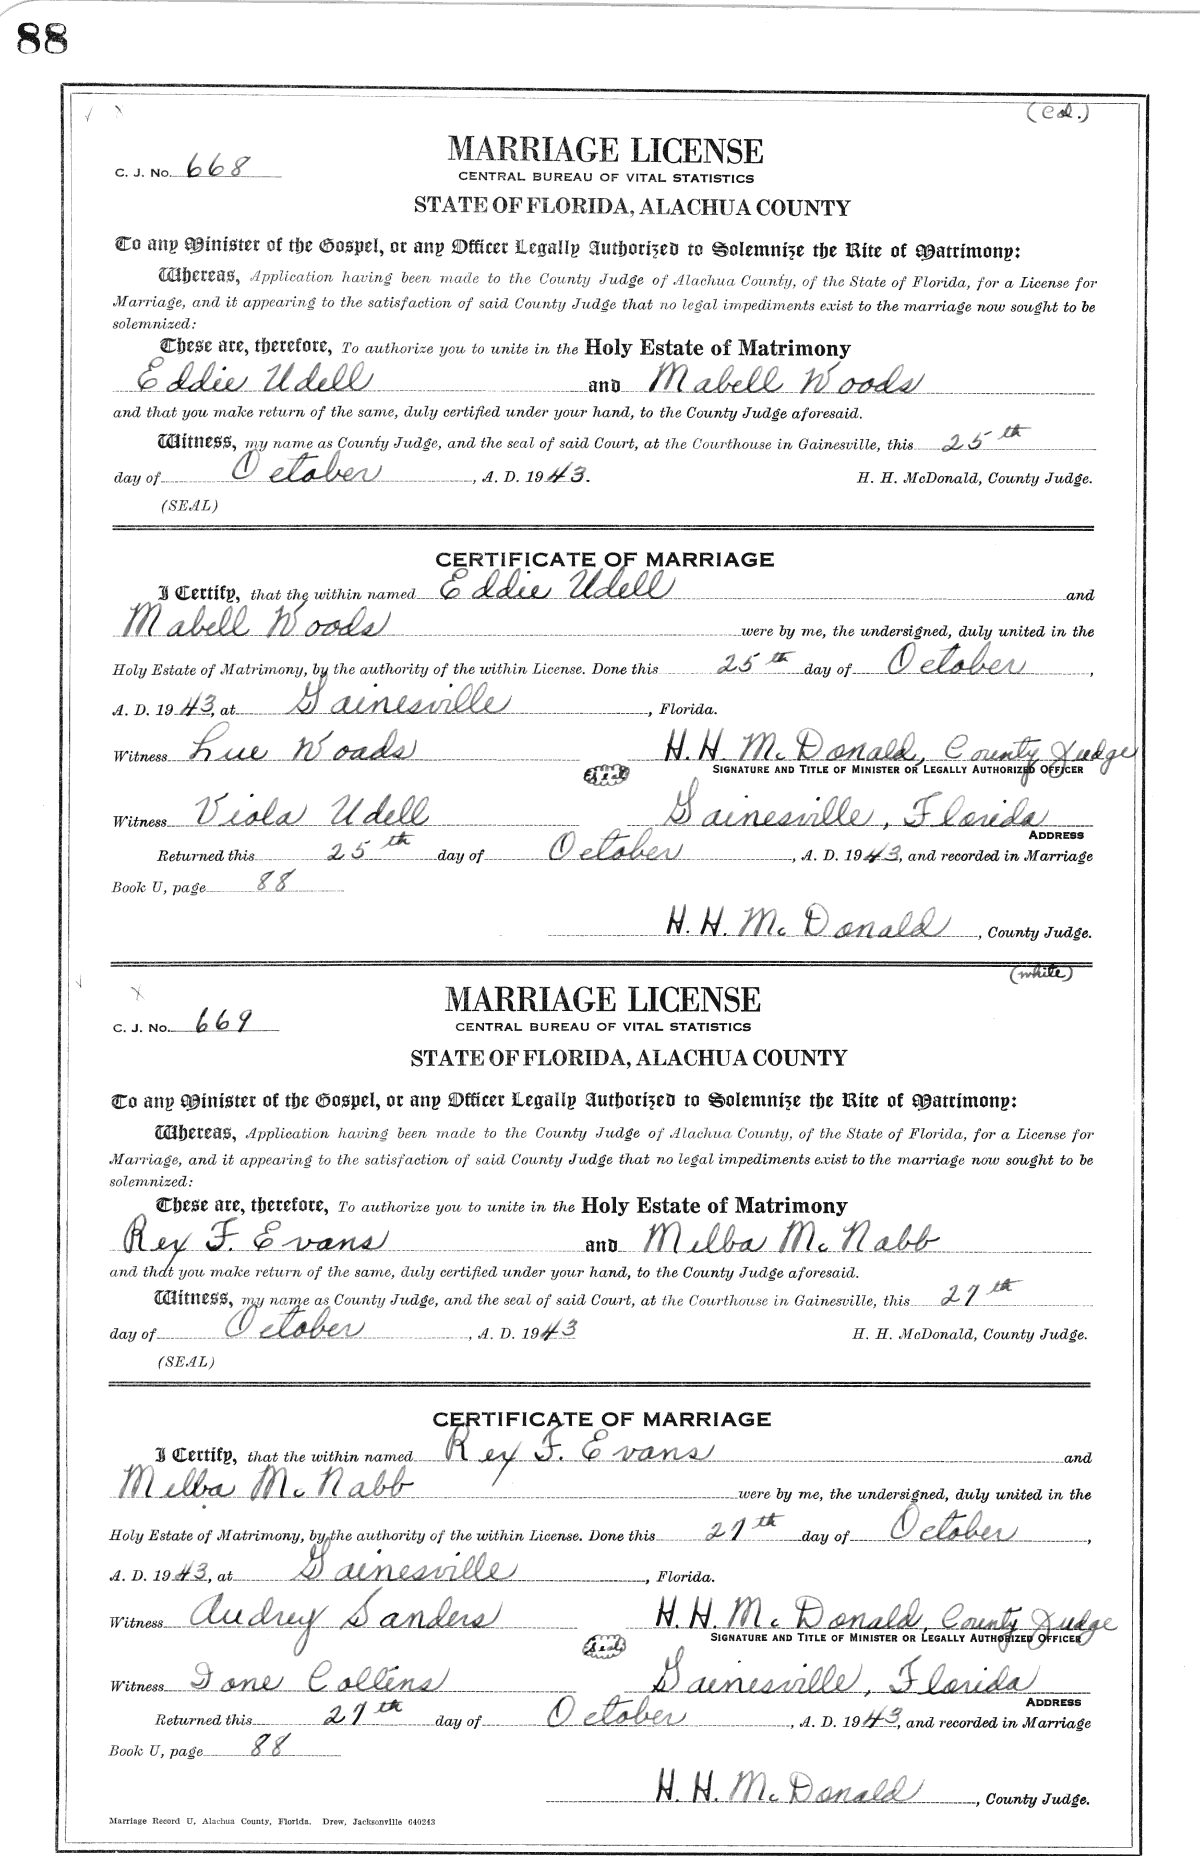 88
(Col.)
MARRIAGE LICENSE
C. J. No. 668
CENTRAL BUREAU OF VITAL STATISTICS
STATE OF FLORIDA, ALACHUA COUNTY
To any Minister of the Gospel, or any Officer Legally Authorized to Solemnize the Rite of Matrimony:
Whereas, Application having been made to the County Judge of Alachua County, of the State of Florida, for a License for
Marriage, and it appearing to the satisfaction of said County Judge that no legal impediments exist to the marriage now sought to be
solemnized:
These are, therefore, To authorize you to unite in the Holy Estate of Matrimony
Eddie Udell and Mabell Woods
and that you make return of the same, duly certified under your hand, to the County Judge aforesaid.
Witness, my name as County Judge, and the seal of said Court, at the Courthouse in Gainesville, this 25th
day of October, A. D. 1943. H. H. McDonald, County Judge.
(SEAL)
CERTIFICATE OF MARRIAGE
I Certify, that the within named Eddie Udell and
Mabell Woods were by me, the undersigned, duly united in the
Holy Estate of Matrimony, by the authority of the within License. Done this 25th day of October,
A. D. 1943, at Gainesville, Florida.
Witness Lue Woods H. H. McDonald, County Judge
Seal SIGNATURE AND TITLE OF MINISTER OR LEGALLY AUTHORIZED OFFICER
Witness Viola Udell Gainesville, Florida
ADDRESS
Returned this 25th day of October, A. D. 1943, and recorded in Marriage
Book U, page 88
H. H. McDonald, County Judge.
(white)
MARRIAGE LICENSE
C. J. No. 669
CENTRAL BUREAU OF VITAL STATISTICS
STATE OF FLORIDA, ALACHUA COUNTY
To any Minister of the Gospel, or any Officer Legally Authorized to Solemnize the Rite of Matrimony:
Whereas, Application having been made to the County Judge of Alachua County, of the State of Florida, for a License for
Marriage, and it appearing to the satisfaction of said County Judge that no legal impediments exist to the marriage now sought to be
solemnized:
These are, therefore, To authorize you to unite in the Holy Estate of Matrimony
Rex F. Evans and Melba McNabb
and that you make return of the same, duly certified under your hand, to the County Judge aforesaid.
Witness, my name as County Judge, and the seal of said Court, at the Courthouse in Gainesville, this 27th
day of October, A. D. 1943 H. H. McDonald, County Judge.
(SEAL)
CERTIFICATE OF MARRIAGE
I Certify, that the within named Rex F. Evans and
Melba McNabb were by me, the undersigned, duly united in the
Holy Estate of Matrimony, by the authority of the within License. Done this 27th day of October,
A. D. 1943, at Gainesville, Florida.
Witness Audrey Sanders H. H. McDonald, County Judge
Seal SIGNATURE AND TITLE OF MINISTER OR LEGALLY AUTHORIZED OFFICER
Witness Ione Collens Gainesville, Florida
ADDRESS
Returned this 27th day of October, A. D. 1943, and recorded in Marriage
Book U, page 88
H. H. McDonald, County Judge.
Marriage Record U, Alachua County, Florida. Drew, Jacksonville 640243